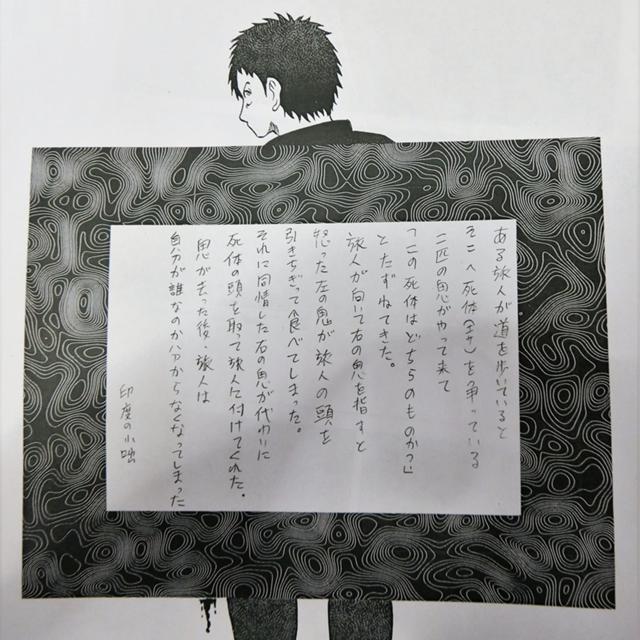 ある旅人が道を歩いていると
そこへ死体(エサ)を争っている
二匹の鬼がやって来て
「この死体はどちらのものか?」
とたずねてきた。
旅人が向いて右の鬼を指すと
怒った左の鬼が旅人の頭を
引きちぎって食べてしまった。
それに同情した右の鬼が代わりに
死体の頭を取て旅人に付けてくれた。
鬼が去った後、旅人は
自分が誰なのか分からなくなってしまった
印度の小咄